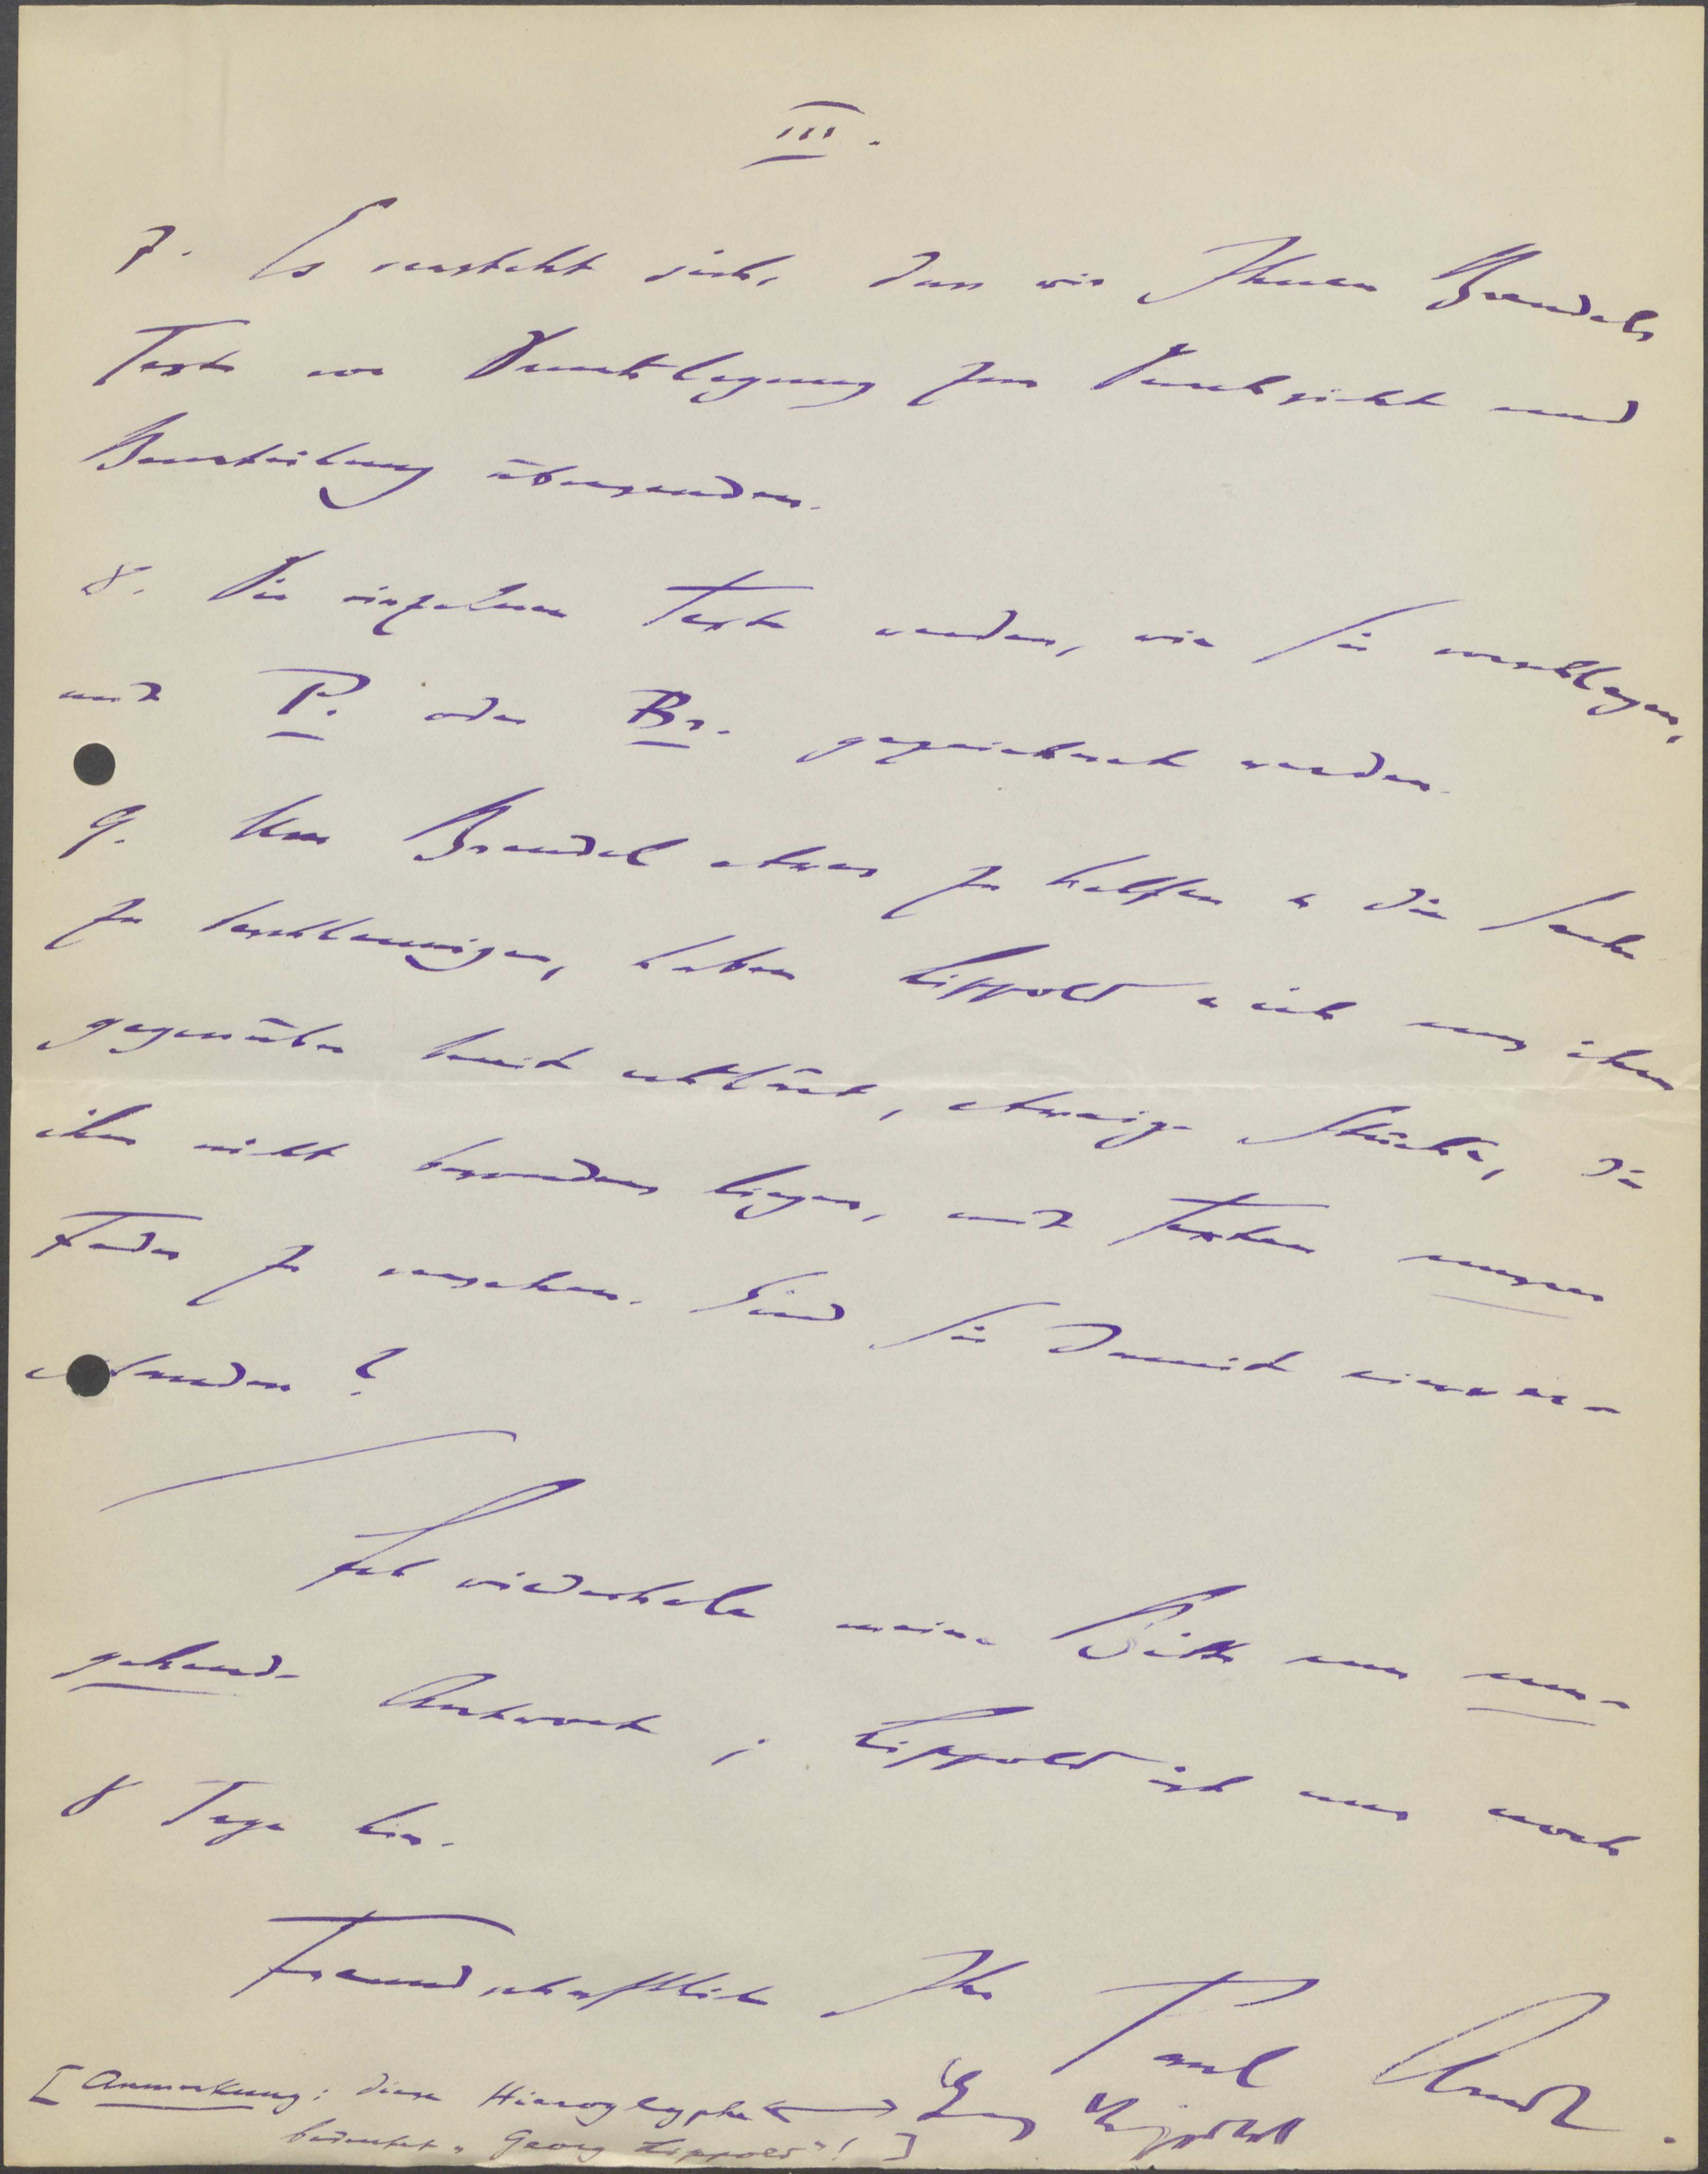 III.
7. Es versteht sich, dass wir Ihnen Brendels
Texte vor Drucklegung zur Durchsicht und
Beurteilung übersenden.
8. Die einzelnen Texte werden, wie Sie vorschlagen,
mit P. oder Br. gezeichnet werden.
9. Um Brendel etwas zu helfen u die Sache
zu beschleunigen, haben Lippold u ich uns ihm
gegenüber bereit erklärt, etwaige Stücke, die
ihm nicht besonders liegen, mit Texten unserer
Feder zu versehen. Sind Sie damit einver-
standen?
Ich wiederhole meine Bitte um um-
gehende Antwort; Lippold ist nur noch
8 Tage hier.
Freundschaftlich Ihr Paul Arndt.
[Anmerkung: diese Hieroglyphe ⟷ Georg Lippold
bedeutet „Georg Lippold"!]